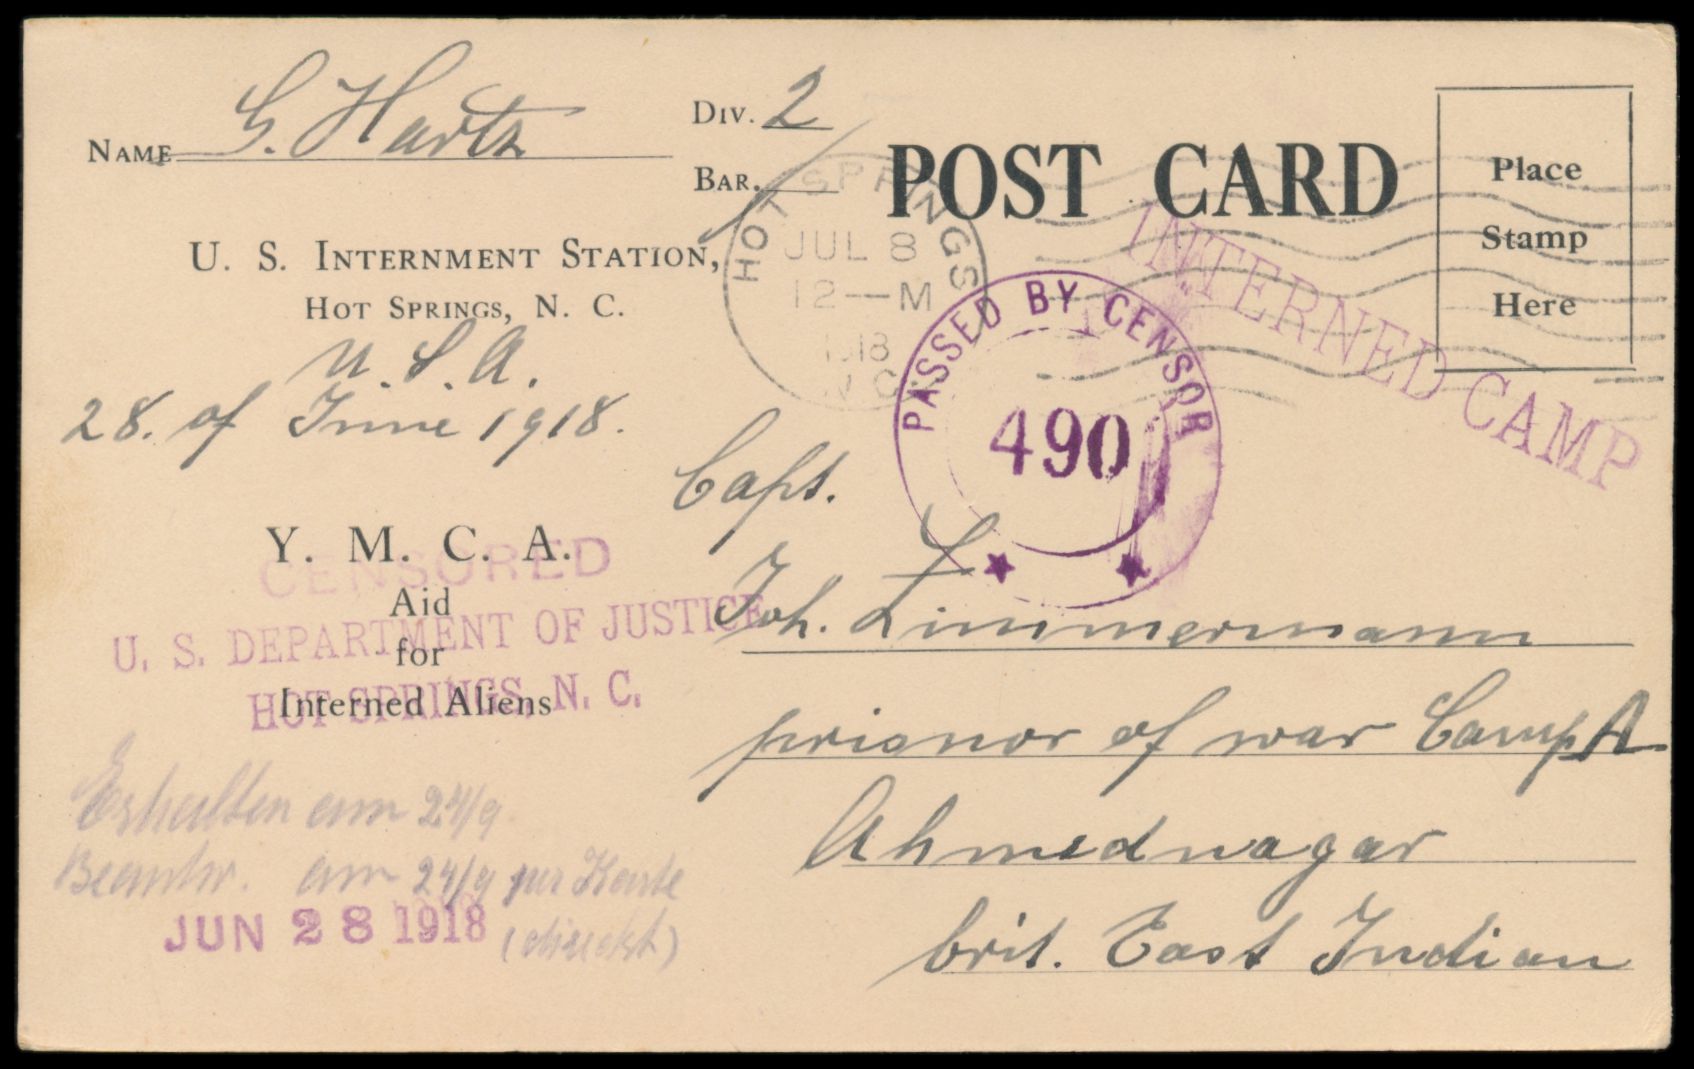 NAME G. Hartz
DIV. 2
BAR.
U. S. INTERNMENT STATION,
HOT SPRINGS, N. C.
U.S.A.
28. of June 1918.
POST CARD
Place
Stamp
Here
HOT SPRINGS
JUL 8
12—M
1918
N.C.
INTERNED CAMP
PASSED BY CENSOR
490
Y. M. C. A.
Aid
for
Interned Aliens
CENSORED
U. S. DEPARTMENT OF JUSTICE
HOT SPRINGS, N. C.
Capt.
Joh. Zimmermann
prisnor of war Camp A
Ahmednagar
brit. East Indian
Erhalten am 24/9
Beantw. am 24/9 per Karte
(direkt)
JUN 28 1918